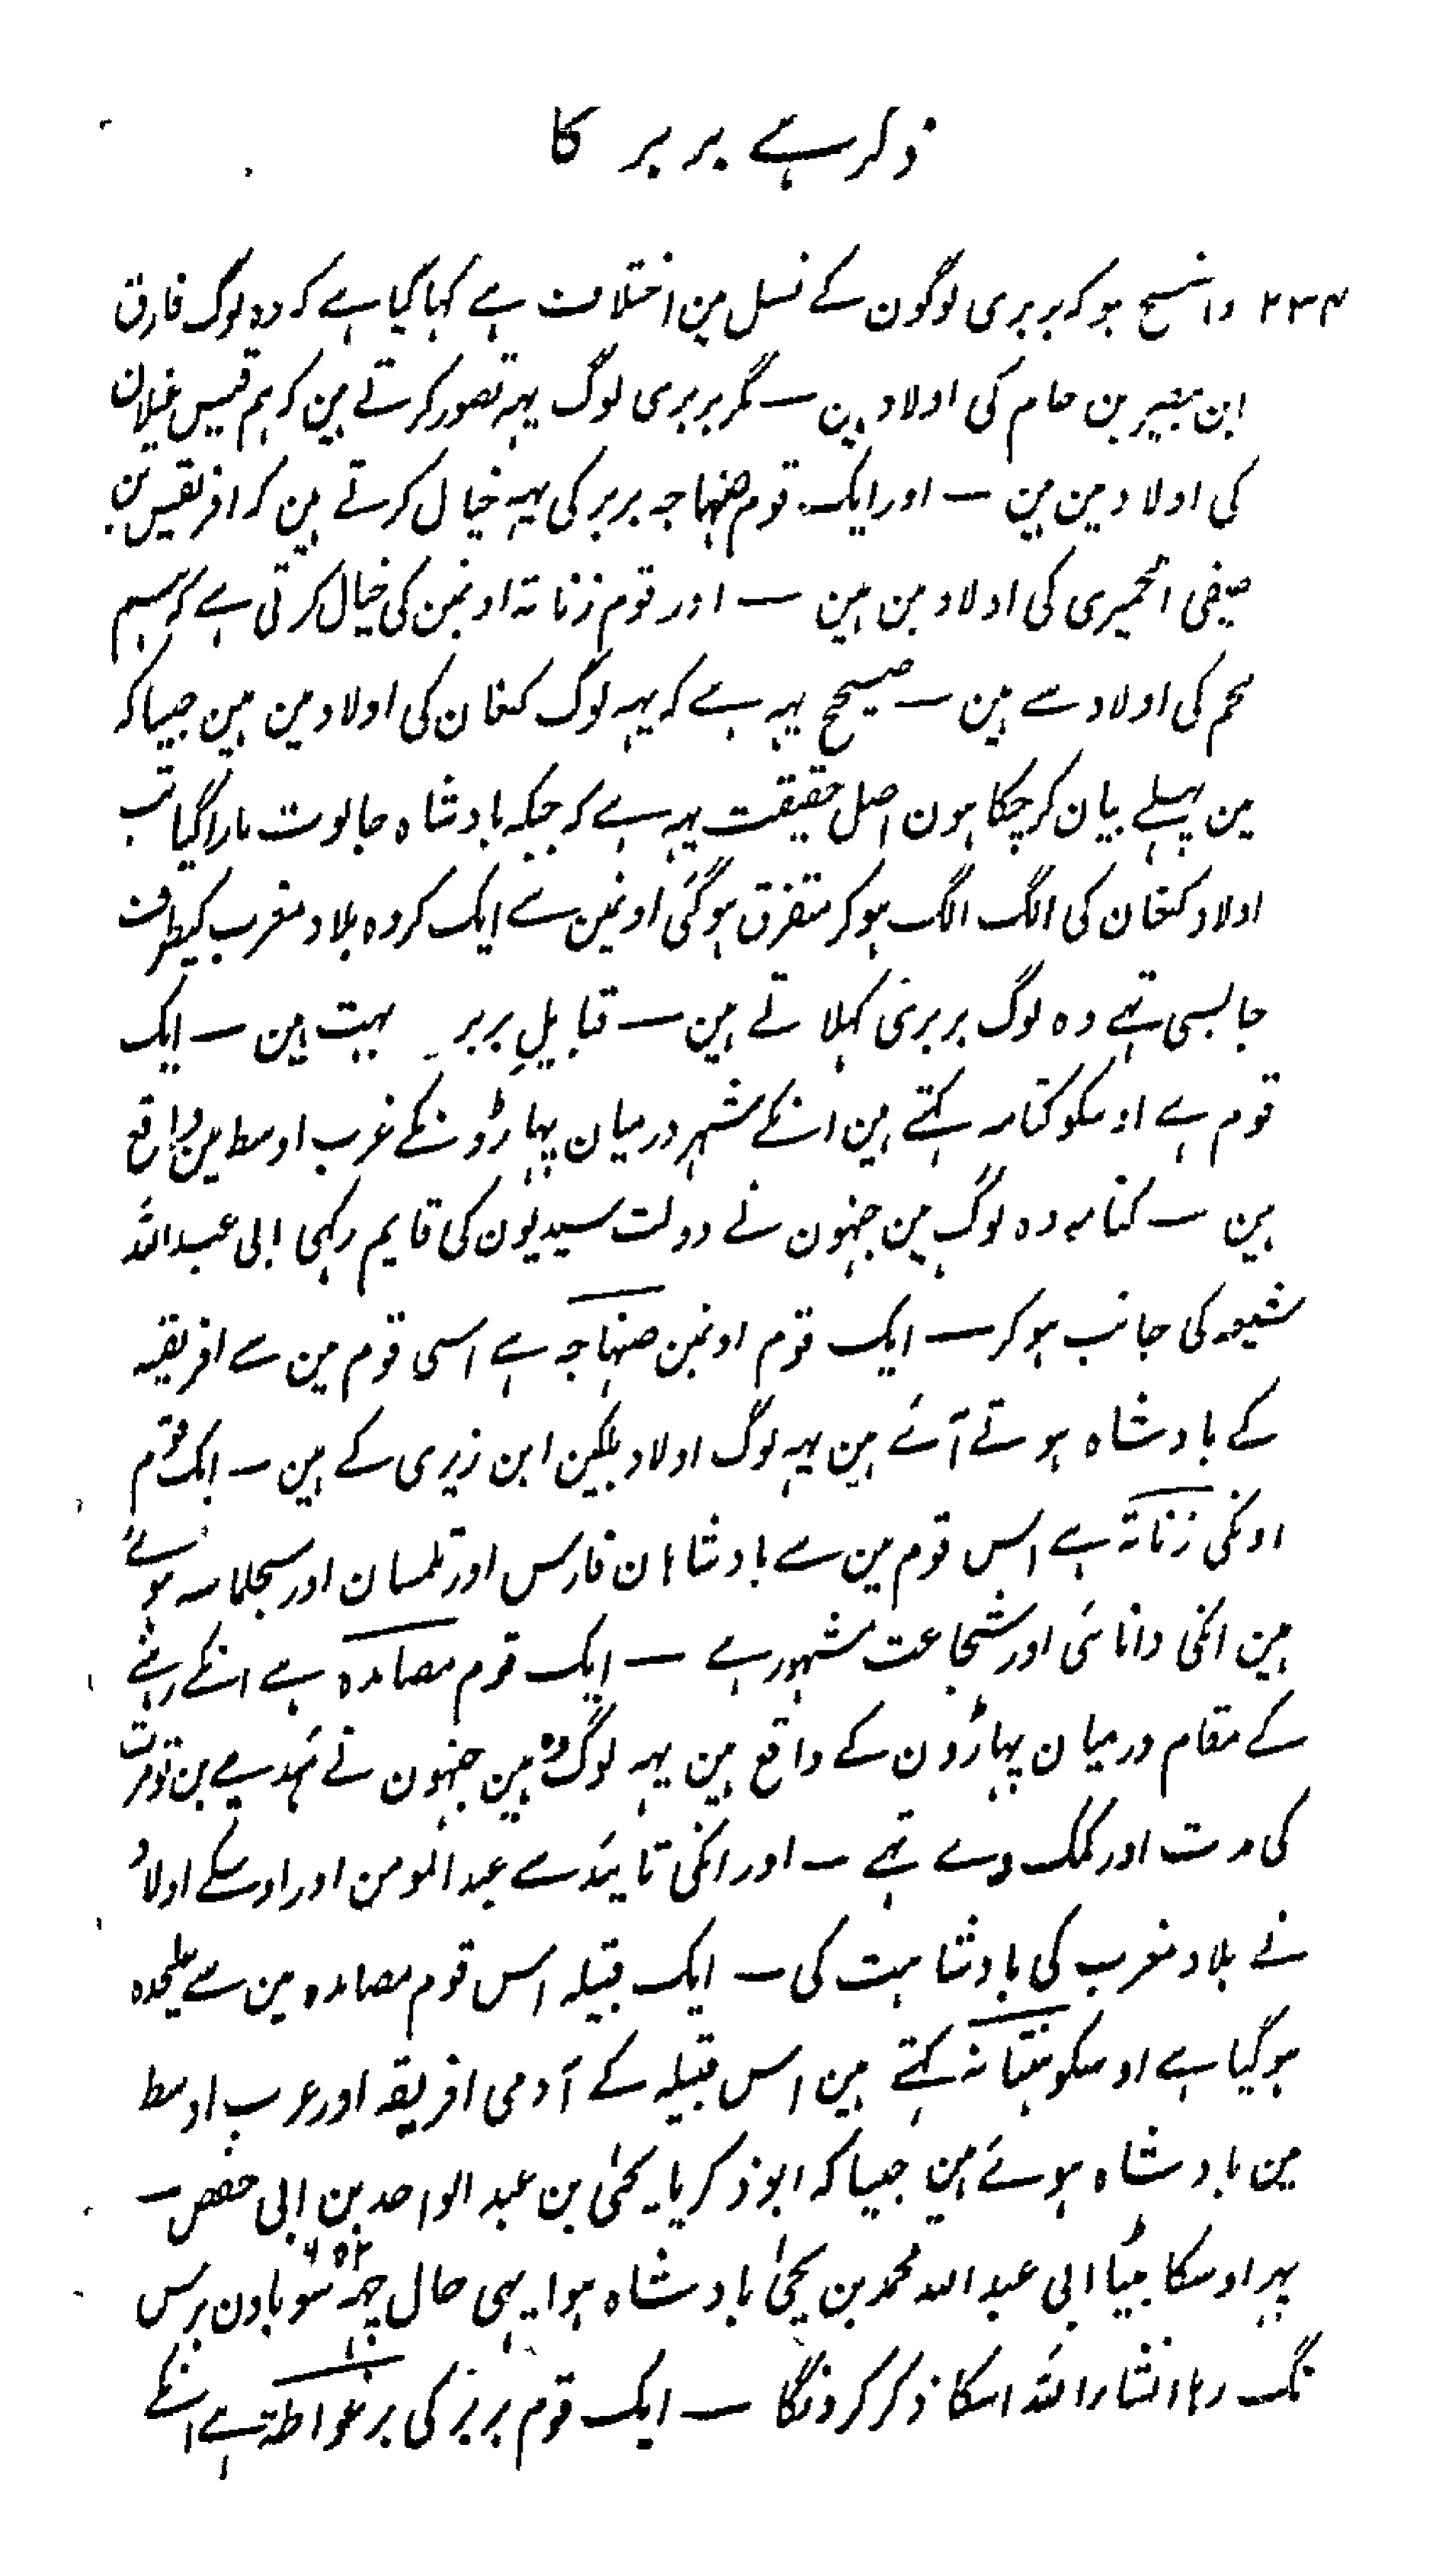 ذکر ہے بربر کا
۲۳۴ واضح ہو کہ بربری لوگون کے نسل مین اختلاف ہے کہا گیا ہے کہ وہ لوگ فارق
ابن بیصر بن حام کی اولاد ہین — مگر بربری لوگ یہہ تصور کرتے ہین کہ ہم قیس غیلان
کی اولاد مین ہین — اور ایک قوم صنہاجہ بربر کی یہہ خیال کرتے ہین کہ افریقیس بن
صیفی الحمیری کی اولاد مین ہین — اور قوم زناتہ اونمین کی خیال کرتی ہے کہ ہم
لخم کی اولاد سے ہین — صحیح یہہ ہے کہ یہہ لوگ کنعان کی اولاد مین ہین جیسا کہ
مین پہلے بیان کر چکا ہون اصل حقیقت یہہ ہے کہ جبکہ بادشاہ جالوت مارا گیا تب
اولاد کنعان کی الگ الگ ہو کر متفرق ہو گئی اونمین سے ایک گروہ بلاد مغرب کیطرف
جا بسی تہے وہ لوگ بربری کہلاتے ہین — قبایلِ بربر بہت ہین — ایک
قوم ہے اوسکو کتامہ کہتے ہین انکے شہر درمیان پہاڑونکے غرب اوسط مین واقع
ہین — کتامہ وہ لوگ ہین جنہون نے دولت سیدیون کی قایم رکہی ابی عبد اللہ
شیعہ کی جانب ہو کر — ایک قوم اونمین صنہاجہ ہے اسی قوم مین سے افریقیہ
کے بادشاہ ہوتے آئے ہین یہہ لوگ اولاد بلکین ابن زیری کے ہین — ایک قوم
اونکی زناتہ ہے اس قوم مین سے بادشاہان فارس اور تلمسان اور سجلماسہ ہوئے
ہین انکی دانائی اور شجاعت مشہور ہے — ایک قوم مصامدہ ہے انکے رہنے
کے مقام درمیان پہاڑون کے واقع ہین یہہ لوگ وہ ہین جنہون نے مہدے بن تومرت
کی مدت اور کمک دے تہے — اور انکی تائید سے عبد المومن اور اوسکے اولاد
نے بلاد مغرب کی بادشاہت کی — ایک قبیلہ اس قوم مصامدہ مین سے علیحدہ
ہو گیا ہے اوسکو ہنتاتہ کہتے ہین اس قبیلہ کے آدمی افریقہ اور عرب اوسط
مین بادشاہ ہوئے ہین جیسا کہ ابو ذکریا یحیٰی بن عبد الواحد بن ابی حفص —
پہر اوسکا بیٹا ابی عبد اللہ محمد بن یحیٰی بادشاہ ہوا یہی حال چہہ سو باون ۶۵۲ برس
تک رہا انشاء اللہ اسکا ذکر کرونگا — ایک قوم بربر کی برغواطۃ ہے انکے